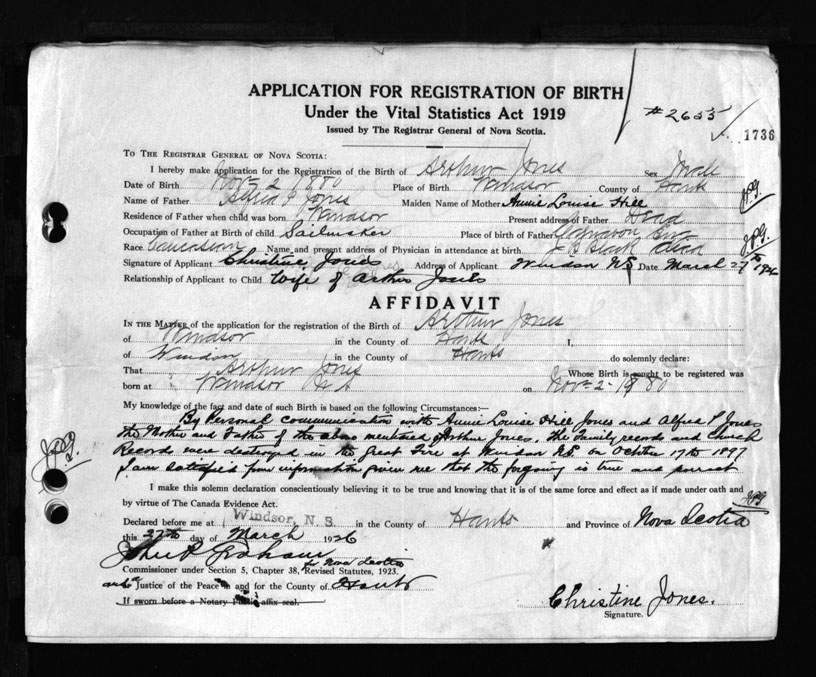 APPLICATION FOR REGISTRATION OF BIRTH
Under the Vital Statistics Act 1919
Issued by The Registrar General of Nova Scotia.
# 2655
1736
TO THE REGISTRAR GENERAL OF NOVA SCOTIA:
I hereby make application for Registration of the Birth of Arthur Jones Sex Male
Date of Birth Nov- 2 1880 Place of Birth Windsor County of Hants
Name of Father Alfred P Jones Maiden Name of Mother Annie Louise Hill
Residence of Father when child was born Windsor Present address of Father Dead
Occupation of Father at Birth of child Sailmaker Place of birth of Father
Race Caucasian Name and present address of Physician in attendance at birth J B Black Dead
Signature of Applicant Christine Jones Address of Applicant Windsor NS Date March 27th 1926
Relationship of Applicant to Child Wife of Arthur Jones
AFFIDAVIT
IN THE MATTER of the application for the registration of the Birth of Arthur Jones
of Windsor in the County of Hants I,
of Windsor in the County of Hants do solemnly declare:
That Arthur Jones Whose Birth is sought to be registered was
born at Windsor N S on Nov- 2- 1880
My knowledge of the fact and date of such Birth is based on the following Circumstances:—
By Personal communication with Annie Louise Hill Jones and Alfred P Jones
the Mother and Father of the above mentioned Arthur Jones. The Family records and Church
Records were destroyed in the great Fire at Windsor NS on October 17th 1897
I am satisfied from information given me that the forgoing is true and
I make this solemn declaration conscientiously believing it to be true and knowing that it is of the same force and effect as if made under oath and
by virtue of The Canada Evidence Act.
Declared before me at Windsor, N. S. in the County of Hants and Province of Nova Scotia
this 27th day of March 1926
John P Graham
for Nova Scotia
Commissioner under Section 5, Chapter 38, Revised Statutes, 1923.
Justice of the Peace in and for the County of Hants
If sworn before a Notary Public affix seal.
Christine Jones.
Signature.